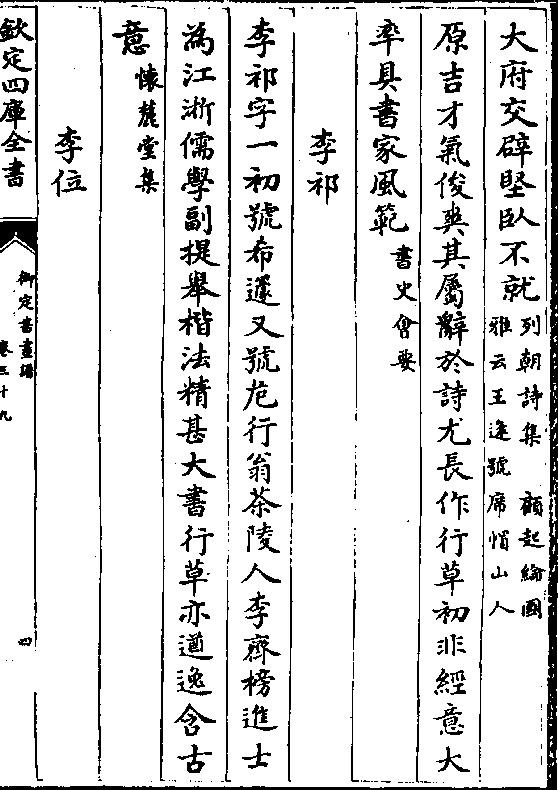 大府交辟堅臥不就列朝詩集 顧起綸國
雅云王逢號席帽山人
原吉才氣俊爽其屬辭於詩尤長作行草初非經意大
率具書家風範書史會要
李祁
李祁字一初號希蘧又號危行翁茶陵人李齊榜進士
為江浙儒學副提舉楷法精甚大書行草亦遒逸含古
意懷麓堂集
李位
欽定四庫全書
御定書畫譜
卷三十九
四